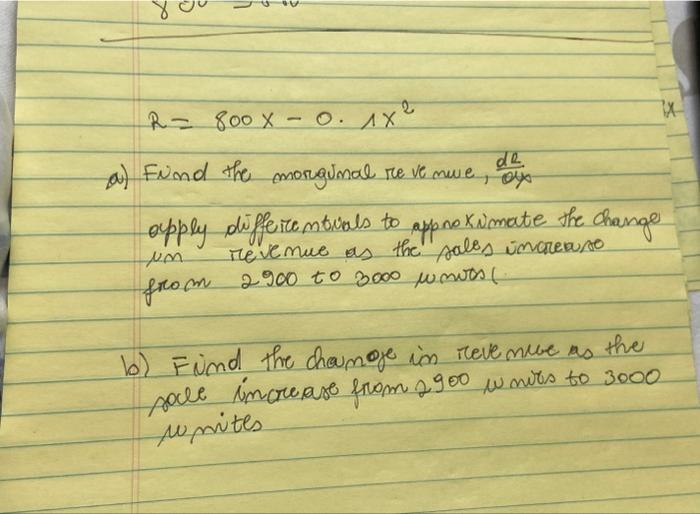 R = 800x - 0.1x²
a) Find the marginal revenue, dR/dx
apply differentials to approximate the change
in revenue as the sales increase
from 2900 to 3000 units(.
b) Find the change in revenue as the
sale increase from 2900 units to 3000
unites